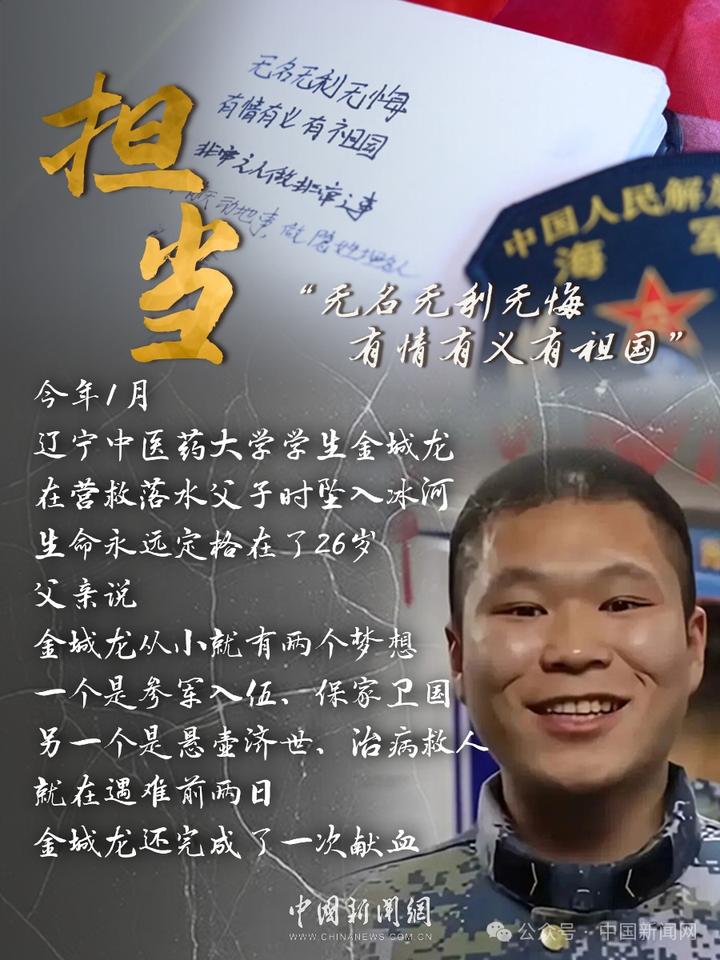 无名无利无悔
有情有义有祖国
非常之人做非常之事
动地事，做隐姓埋名人
担
当
中国人民解放
海军
“无名无利无悔
有情有义有祖国”
今年1月
辽宁中医药大学学生金城龙
在营救落水父子时坠入冰河
生命永远定格在了26岁
父亲说
金城龙从小就有两个梦想
一个是参军入伍、保家卫国
另一个是悬壶济世、治病救人
就在遇难前两日
金城龙还完成了一次献血
中國新聞網
WWW.CHINANEWS.COM.CN
公众号·中国新闻网